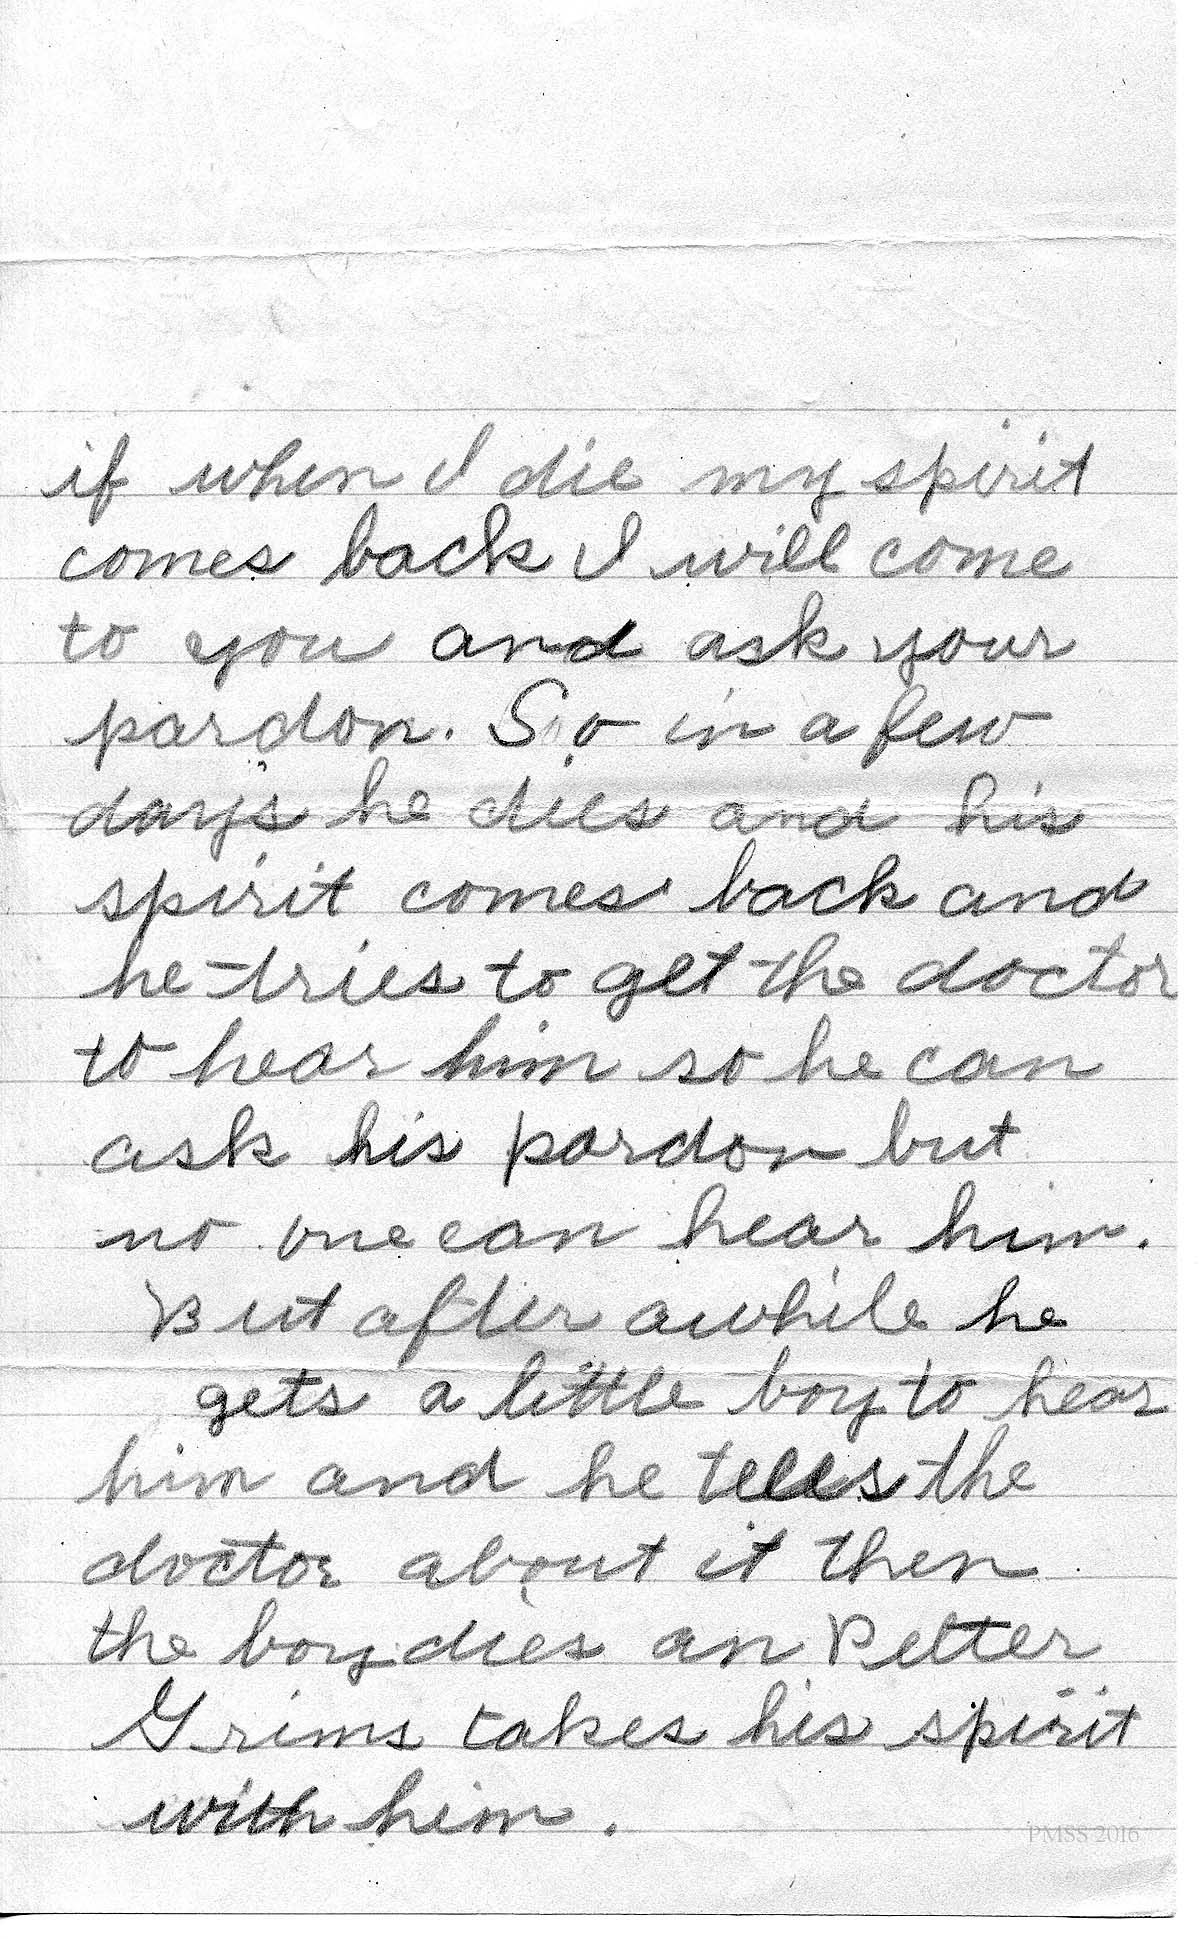 if when I die my spirit
comes back I will come
to you and ask your
pardon. So in a few
days he dies and his
spirit comes back and
he tries to get the doctor
to hear him so he can
ask his pardon but
no one can hear him.
But after awhile he
gets a little boy to hear
him and he tells the
doctor about it then
the boy dies an Petter
Grims takes his spirit
with him.
PMSS 2016